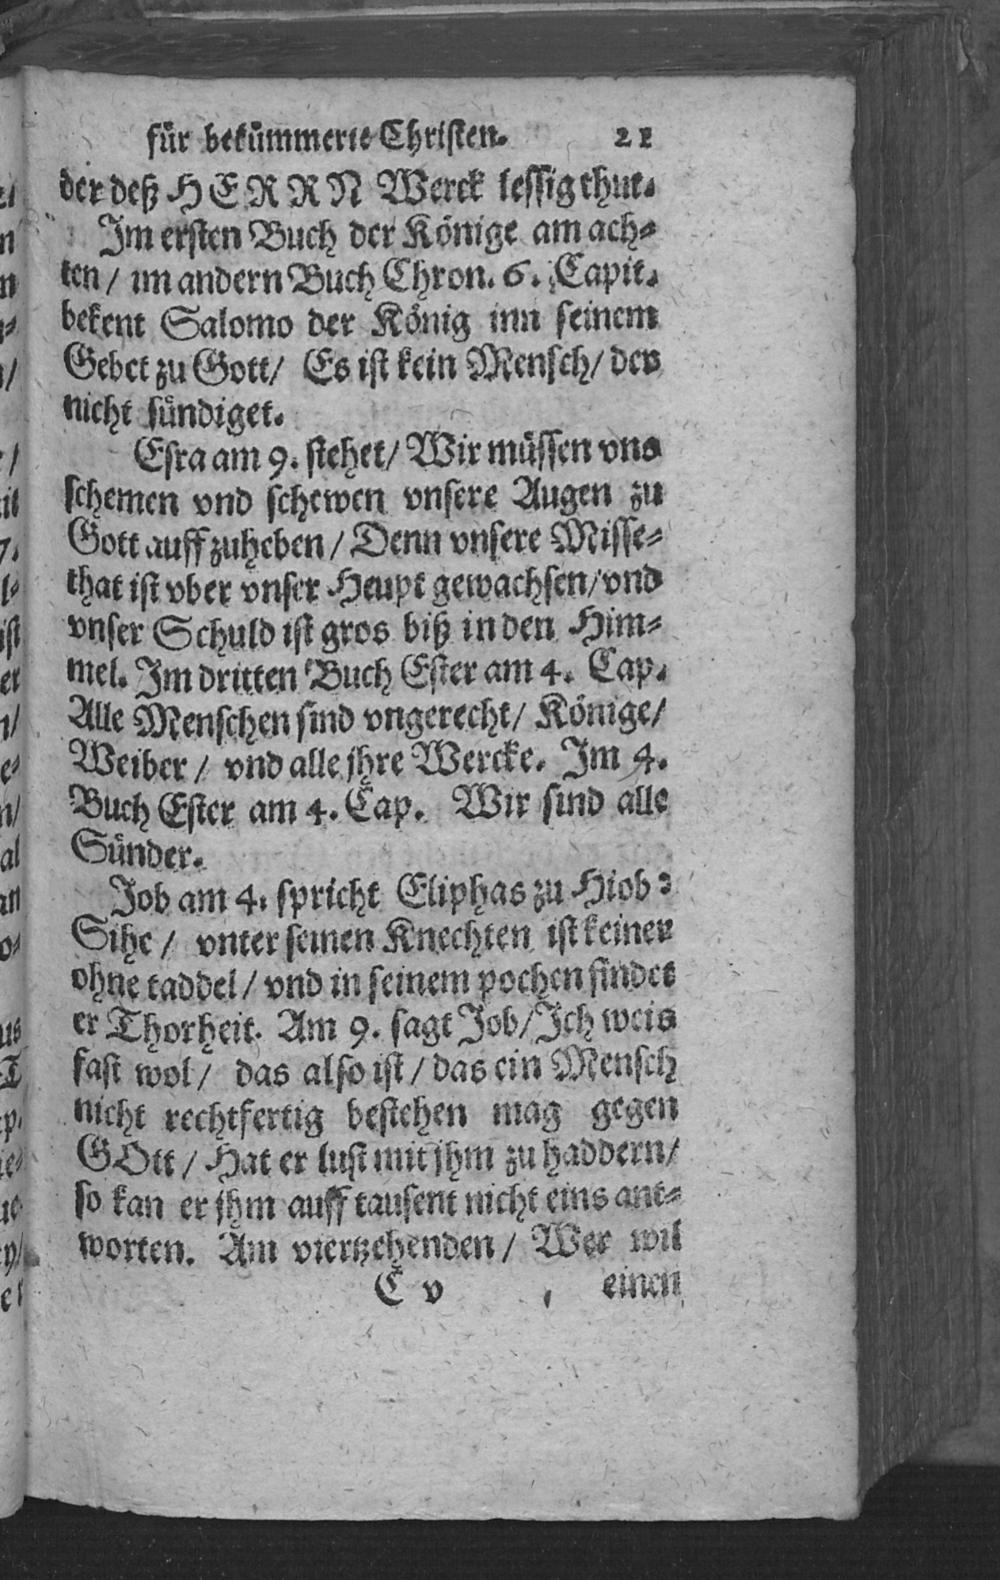 für bekümmerte Christen. 21
der deß HERRN Werck lessig thut.
Im ersten Buch der Könige am ach-
ten / im andern Buch Chron. 6. Capit.
bekent Salomo der König inn seinem
Gebet zu Gott / Es ist kein Mensch / der
nicht sündiget.
Esra am 9. stehet / Wir müssen vns
schemen vnd schewen vnsere Augen zu
Gott auff zuheben / Denn vnsere Misse-
that ist vber vnser Heupt gewachsen / vnd
vnser Schuld ist gros biß in den Him-
mel. Im dritten Buch Ester am 4. Cap.
Alle Menschen sind vngerecht / Könige /
Weiber / vnd alle jhre Wercke. Im 4.
Buch Ester am 4. Cap. Wir sind alle
Sünder.
Job am 4. spricht Eliphas zu Hiob:
Sihe / vnter seinen Knechten ist keiner
ohne taddel / vnd in seinem pochen findet
er Thorheit. Am 9. sagt Job / Ich weis
fast wol / das also ist / das ein Mensch
nicht rechtfertig bestehen mag gegen
GOtt / Hat er lust mit jhm zu haddern /
so kan er jhm auff tausent nicht eins ant-
worten. Am viertzehenden / Wer wil
C v einen